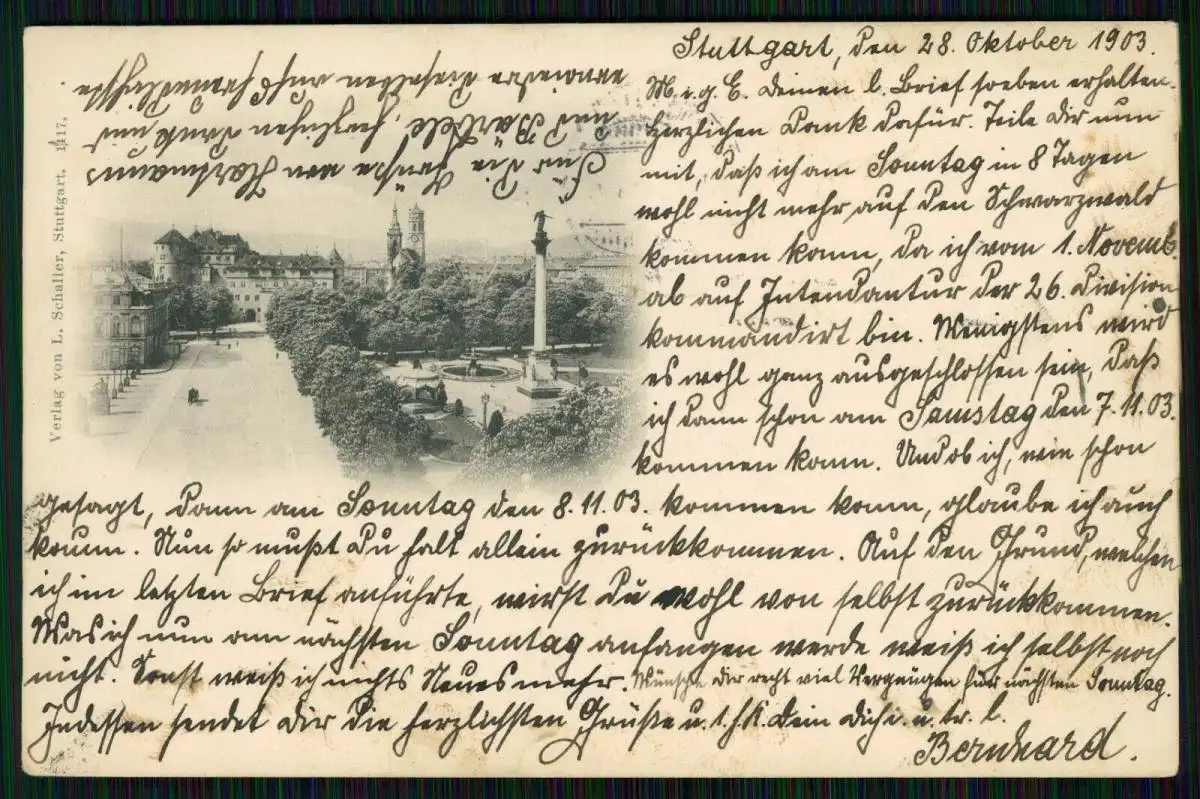 Stuttgart, den 28. Oktober 1903.
M. i. g. E. Deinen l. Brief soeben erhalten.
herzlichen Dank dafür. Teile Dir nun
mit, daß ich am Sonntag in 8 Tagen
wohl nicht mehr auf den Schwarzwald
kommen kann, da ich vom 1. Novemb.
ab auf Intendantur der 26. Division
kommandirt bin. Wenigstens wird
es wohl ganz ausgeschlossen sein, daß
ich dann schon am Samstag den 7.11.03.
kommen kann. Und ob ich, wie schon
gesagt, dann am Sonntag den 8.11.03. kommen kann, glaube ich auch
kaum. Nun so mußt Du halt allein zurückkommen. Auf den Grund, welchen
ich im letzten Brief anführte, wirst Du wohl von selbst zurückkommen.
Was ich nun am nächsten Sonntag anfangen werde weiß ich selbst noch
nicht. Sonst weiß ich nichts Neues mehr. Wünsche Dir recht viel Vergnügen für nächsten Sonntag.
Indessen sendet Dir die herzlichsten Grüße u. 1.h.K. Dein Dich i. u. tr. l.
Bernhard.
Für die Grüße von Hartmanns
und Bärbele, herzlichen Dank und
erwiedre dieselben aufs freundlichste
Verlag von L. Schaller, Stuttgart. 1117.